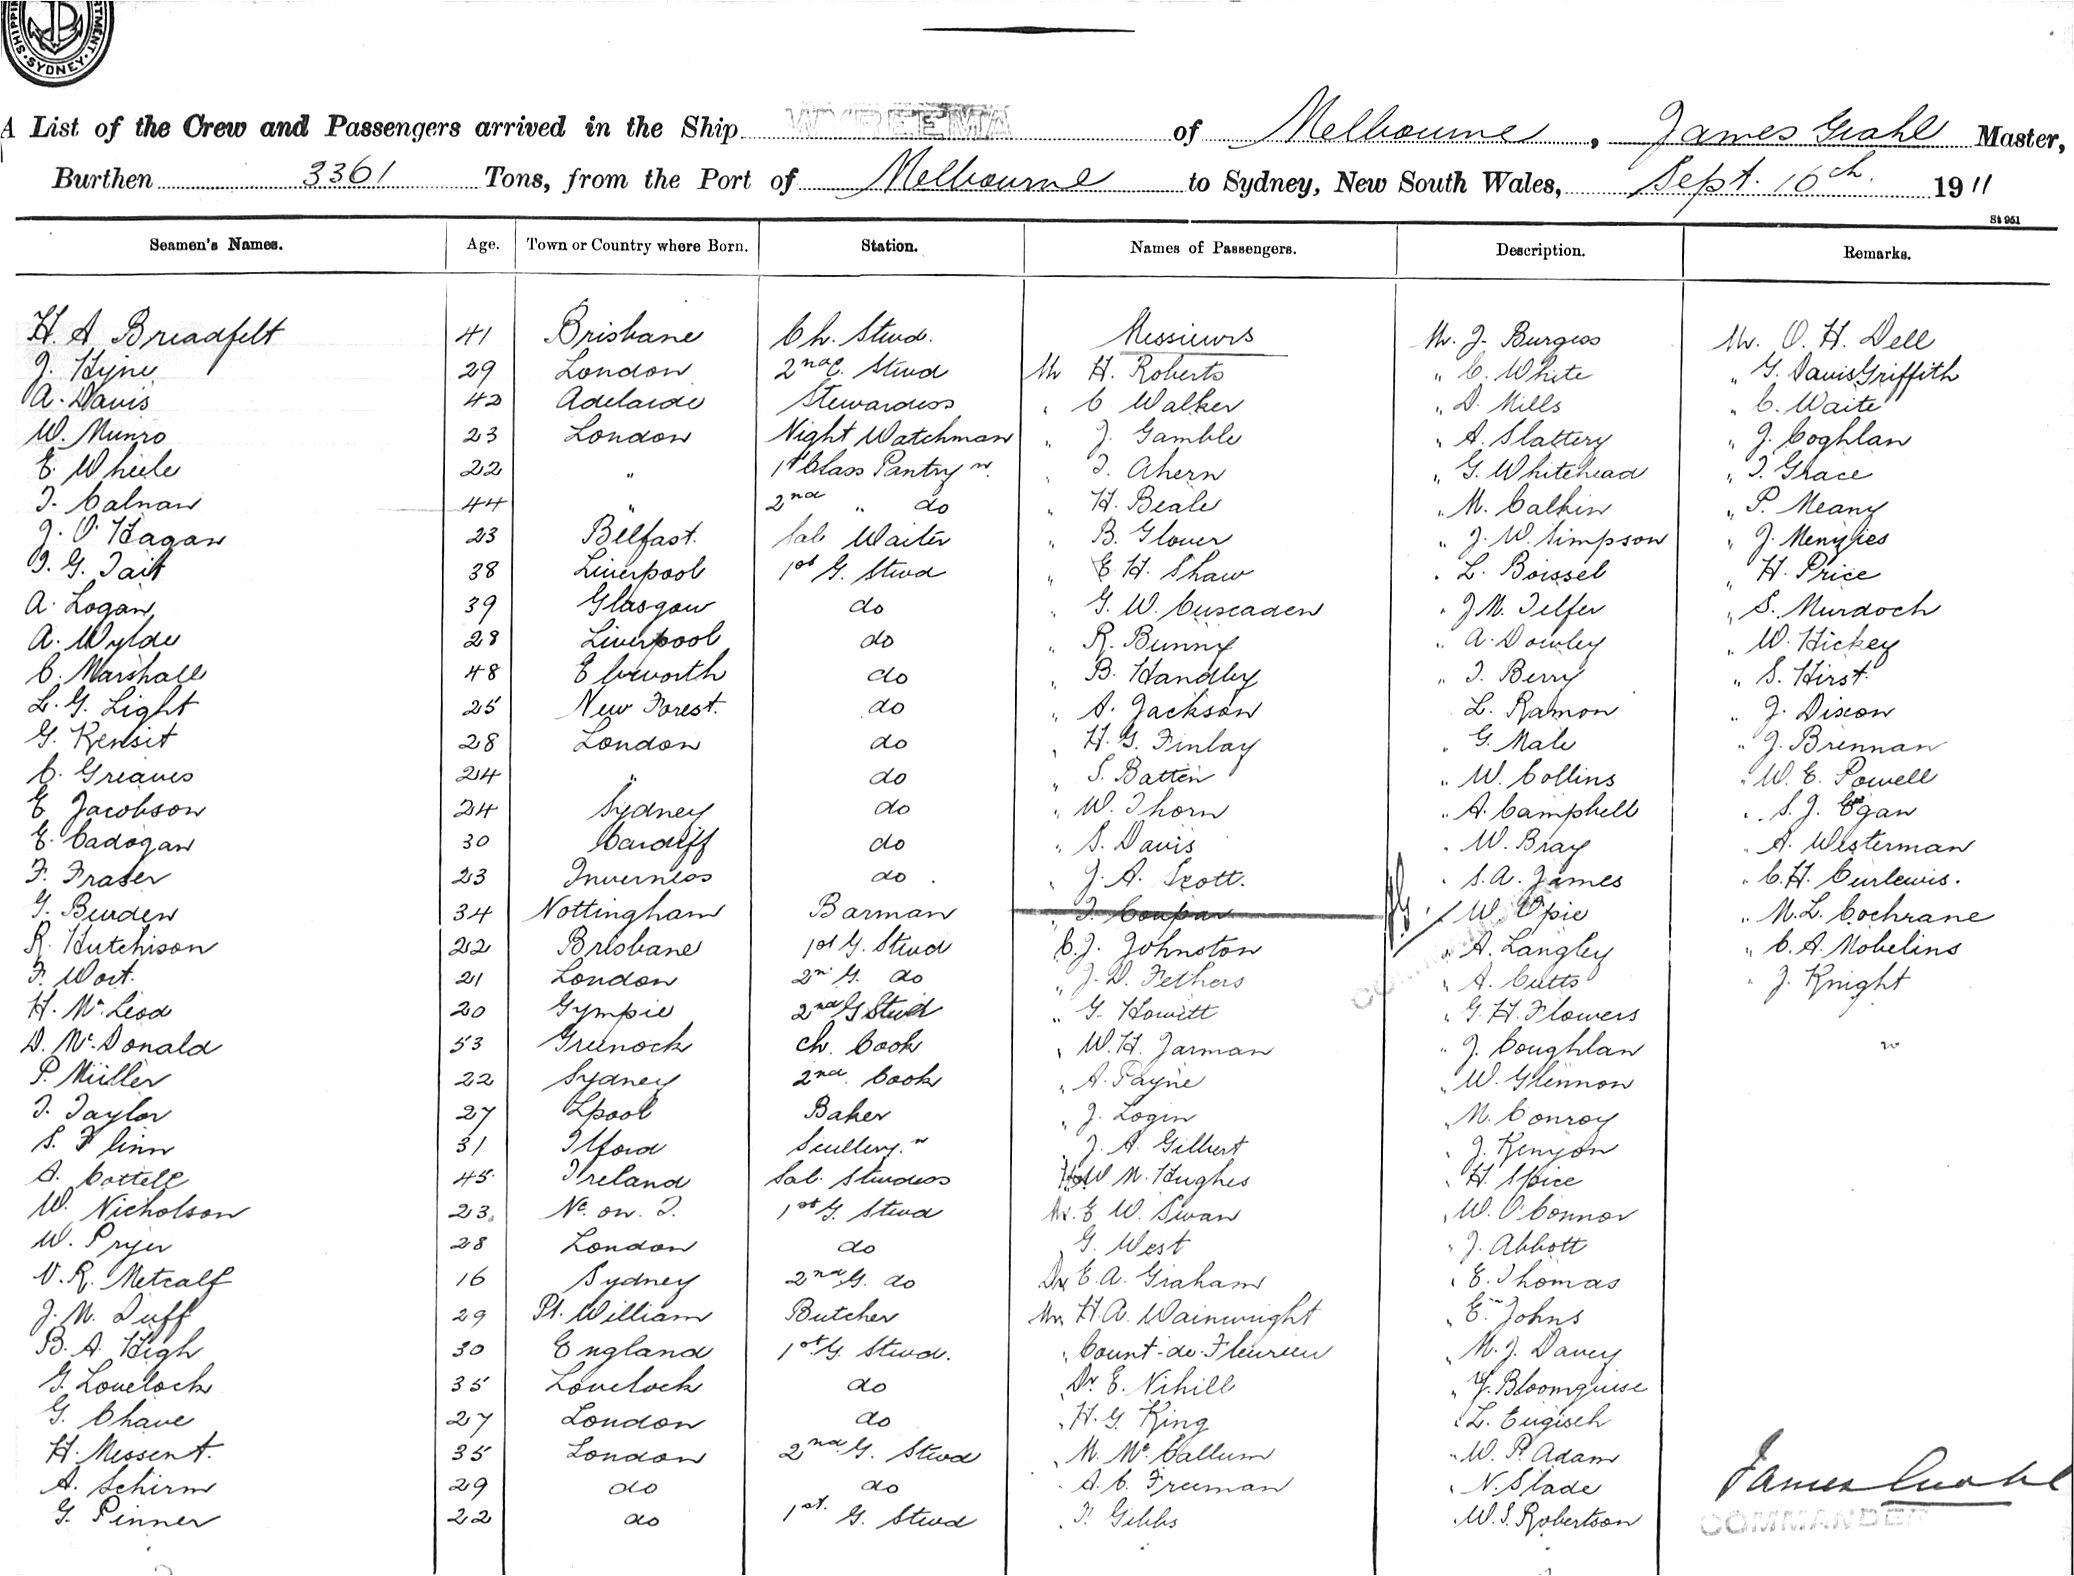 SHIPPI RTMENT. SYDNEY.
A List of the Crew and Passengers arrived in the Ship WYREEMA of Melbourne, James Grahl Master,
Burthen 3361 Tons, from the Port of Melbourne to Sydney, New South Wales, Sept. 16th 1911
St 951
Seamen's Names. Age. Town or Country where Born. Station. Names of Passengers. Description. Remarks.
H. A Breadfelt 41 Brisbane Ch. Stwd. Messieurs Mr. J. Burgess Mr. O. H. Dell
J. Hyne 29 London 2nd C. Stwd Mr H. Roberts " C. White " G. Davis Griffith
A. Davis 42 Adelaide Stewardess " C. Walker " D. Mills " C. Waite
W. Munro 23 London Night Watchman " J. Gamble " A. Slattery " J. Coghlan
E. Wheele 22 " 1st Class Pantry " T. Ahern " G. Whitehead " T. Grace
T. Calnan 44 " 2nd " do " H. Beale " M. Calkin " P. Meany
J. O'Hagan 23 Belfast. Sal. Waiter " B. Glover " J. W. Simpson " J. Menzies
T. G. Tait 38 Liverpool 1st G. Stwd " E. H. Shaw " L. Boissel " H. Price
A. Logan 39 Glasgow do " G. W. Cuscaden " J. M. Telfer " S. Murdoch
A. Wylde 28 Liverpool do " R. Bunny " A. Dowley " W. Hickey
C. Marshall 48 do " B. Handby " T. Berry " S. Hirst
L. G. Light 25 New Forest. do " A. Jackson L. Ramon " J. Dixon
G. Kensit 28 London do " H. G. Finlay " G. Male " J. Brennan
C. Greaves 24 " do " S. Batten " W. Collins " W. E. Powell
E Jacobson 24 Sydney do " W. Thorn " A. Campbell " S. J. Egan
E. Cadogan 30 Cardiff do " S. Davis " W. Bray " A. Westerman
F. Fraser 23 Inverness do. " J. A. Scott. " S. A. James " C. H. Curlewis.
G. Burden 34 Nottingham Barman " T. Coupar " W. Opie " M. L. Cochrane
R. Hutchison 22 Brisbane 1st G. Stwd C. J. Johnston " A. Langley " C. A. Mobelins
F. Wort. 21 London 2nd G. do " J. D. Fethers " A. Cutts " J. Knight
H. Mc Leod 20 Gympie 2nd G Stwd " G. Howitt " G. H. Flowers
D. Mc Donald 53 Greenock Ch. Cook " W. H. Jarman " J. Coughlan
P. Müller 22 Sydney 2nd. Cook " A. Payne " W. Glennon
T. Taylor 27 Lpool Baker " J. Login M. Conroy
S. Flinn 31 Ilford J. A. Gilbert " J. Kenyon
A. Cottell 45 Ireland Sal. Stwdess W M. Hughes " H. Spice
W. Nicholson 23 Nc. on. T. 1st G. Stwd Mr. E W. Swan " W. O'Connor
W. Pryer 28 London do G. West " J. Abbott
V. R. Metcalf 16 Sydney 2nd G. do Dr E. A. Graham " E. Thomas
J. M. Duff 29 Pt. William Butcher Mr H. A. Wainwright " E. Johns
B. A. High 30 England 1st G Stwd. " Count-de-Fleurieu " M. J. Davey
G. Lovelock 35 Lovelock do " Dr. E. Nihill " J. Bloomguise
G. Chave 27 London do " H. G. King " L. Eugisch
H. Messent. 35 London 2nd G. Stwd " M. Mc Callum " W. P. Adam
A. Schirm 29 do do " A. C. Freeman " N. Slade
G. Pinner 22 do 1st. G. Stwd " F. Gibbs " W. S. Robertson
James Grahl
COMMANDER